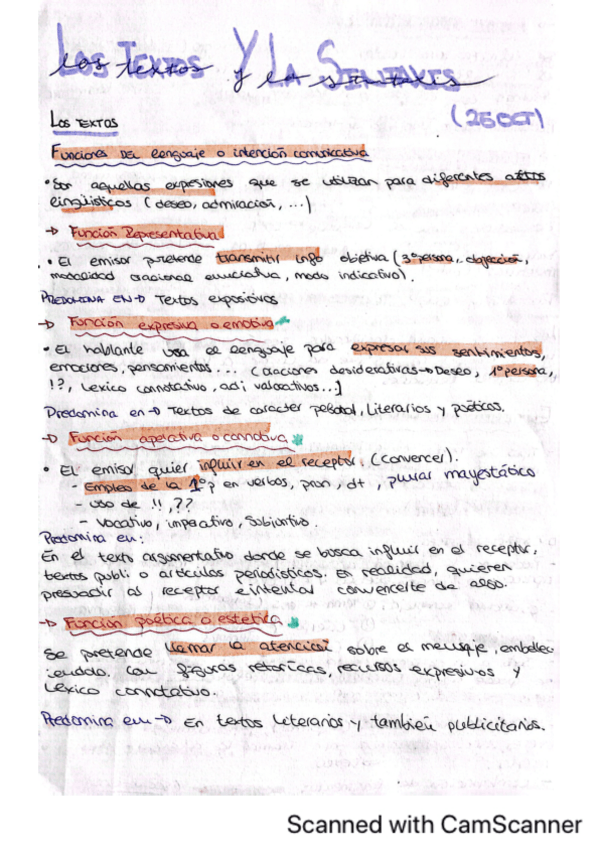 Los Textos Y La Sintaxis
(25 OCT)
Los Textos
Funciones del lenguaje o intención comunicativa
• Son aquellas expresiones que se utilizan para diferentes actos
lingüísticos (deseo, admiración, ...)
→ Función Representativa
• El emisor pretende transmitir info objetiva (3ª persona, objeción,
modalidad oracional enunciativa, modo indicativo).
PREDOMINA EN → Textos expositivos
→ Función expresiva o emotiva *
• El hablante usa el lenguaje para expresar sus sentimientos,
emociones, pensamientos... (oraciones desiderativas → Deseo, 1ª persona,
!?, Lexico connotativo, adj valorativos...]
Predomina en → Textos de caracter personal, Literarios y poéticos.
→ Función apelativa o connotiva *
• El emisor quier influir en el receptor. (convencer).
- Empleo de la 1ª p en verbos, pron, dt, plural mayestático
- uso de !!, ??
- Vocativo, imperativo, Subjuntivo.
Predomina en:
En el texto argumentativo donde se busca influir en el receptor,
textos publi o artículos periodísticos. En realidad, quieren
persuadir al receptor e intentar convencerte de algo.
→ Función poética o estetica *
Se pretende llamar la atención sobre el mensaje, embelle-
ciendolo con figuras retóricas, recursos expresivos y
Lexico connotativo.
Predomina en → En textos Literarios y también publicitarios.
Scanned with CamScanner